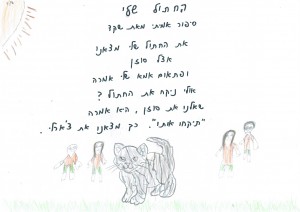 החתול שלי
סיפור אמתי מאת שקד
את החתול שלי מצאנו
אצל סוזן
ופתאום אמא שלי אמרה
אולי ניקח את החתול?
שאלנו את סוזן, היא אמרה
"תיקחו אותו". כך מצאנו את צ'ארלי.